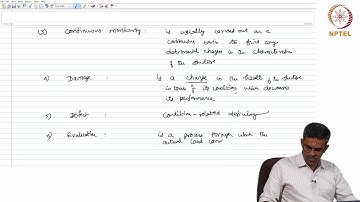 NPTEL
(3) Continuous monitoring : is usually carried out on a
continuous basis to find any
detrimental changes in the characteristics
of the structure
4) Damage : is a change in the health of the structure
in terms of its condition, which decreases
its performance
5) Defect : Condition-related deficiency
6) Evaluation : is a process through which the
actual load carr